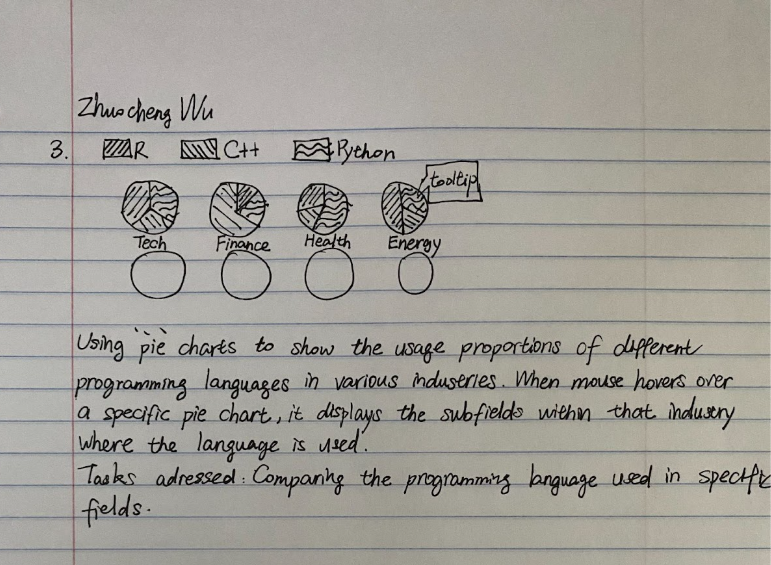 Zhuocheng Wu
3. R C++ Python
tooltip
Tech Finance Health Energy
Using pie charts to show the usage proportions of different
programming languages in various industeries. When mouse hovers over
a specific pie chart, it displays the subfields within that industry
where the language is used.
Tasks adressed: Comparing the programming language used in specific
fields.